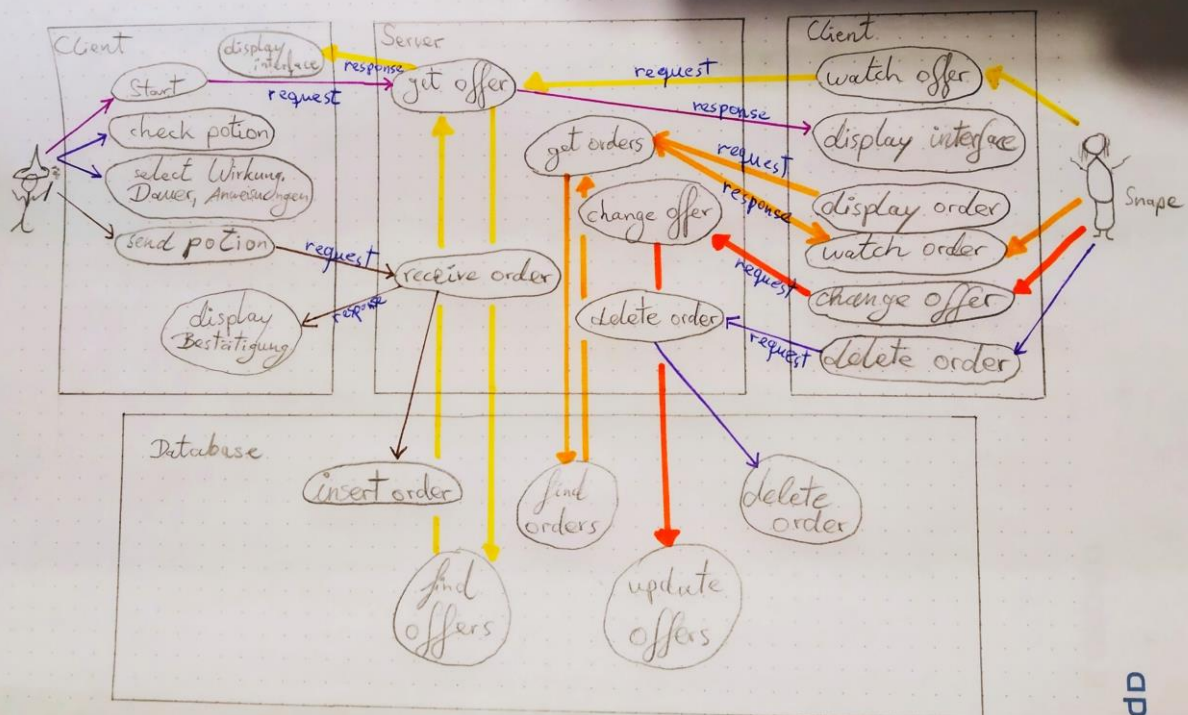 Client
display
interface
Start
check potion
select Wirkung,
Dauer, Anweisungen
send potion
display
Bestätigung
request
response
request
response
Server
get offer
get orders
change offer
receive order
delete order
request
response
request
response
request
request
Client
watch offer
display interface
display order
watch order
change offer
delete order
Snape
Database
insert order
find
orders
delete
order
find
offers
update
offers